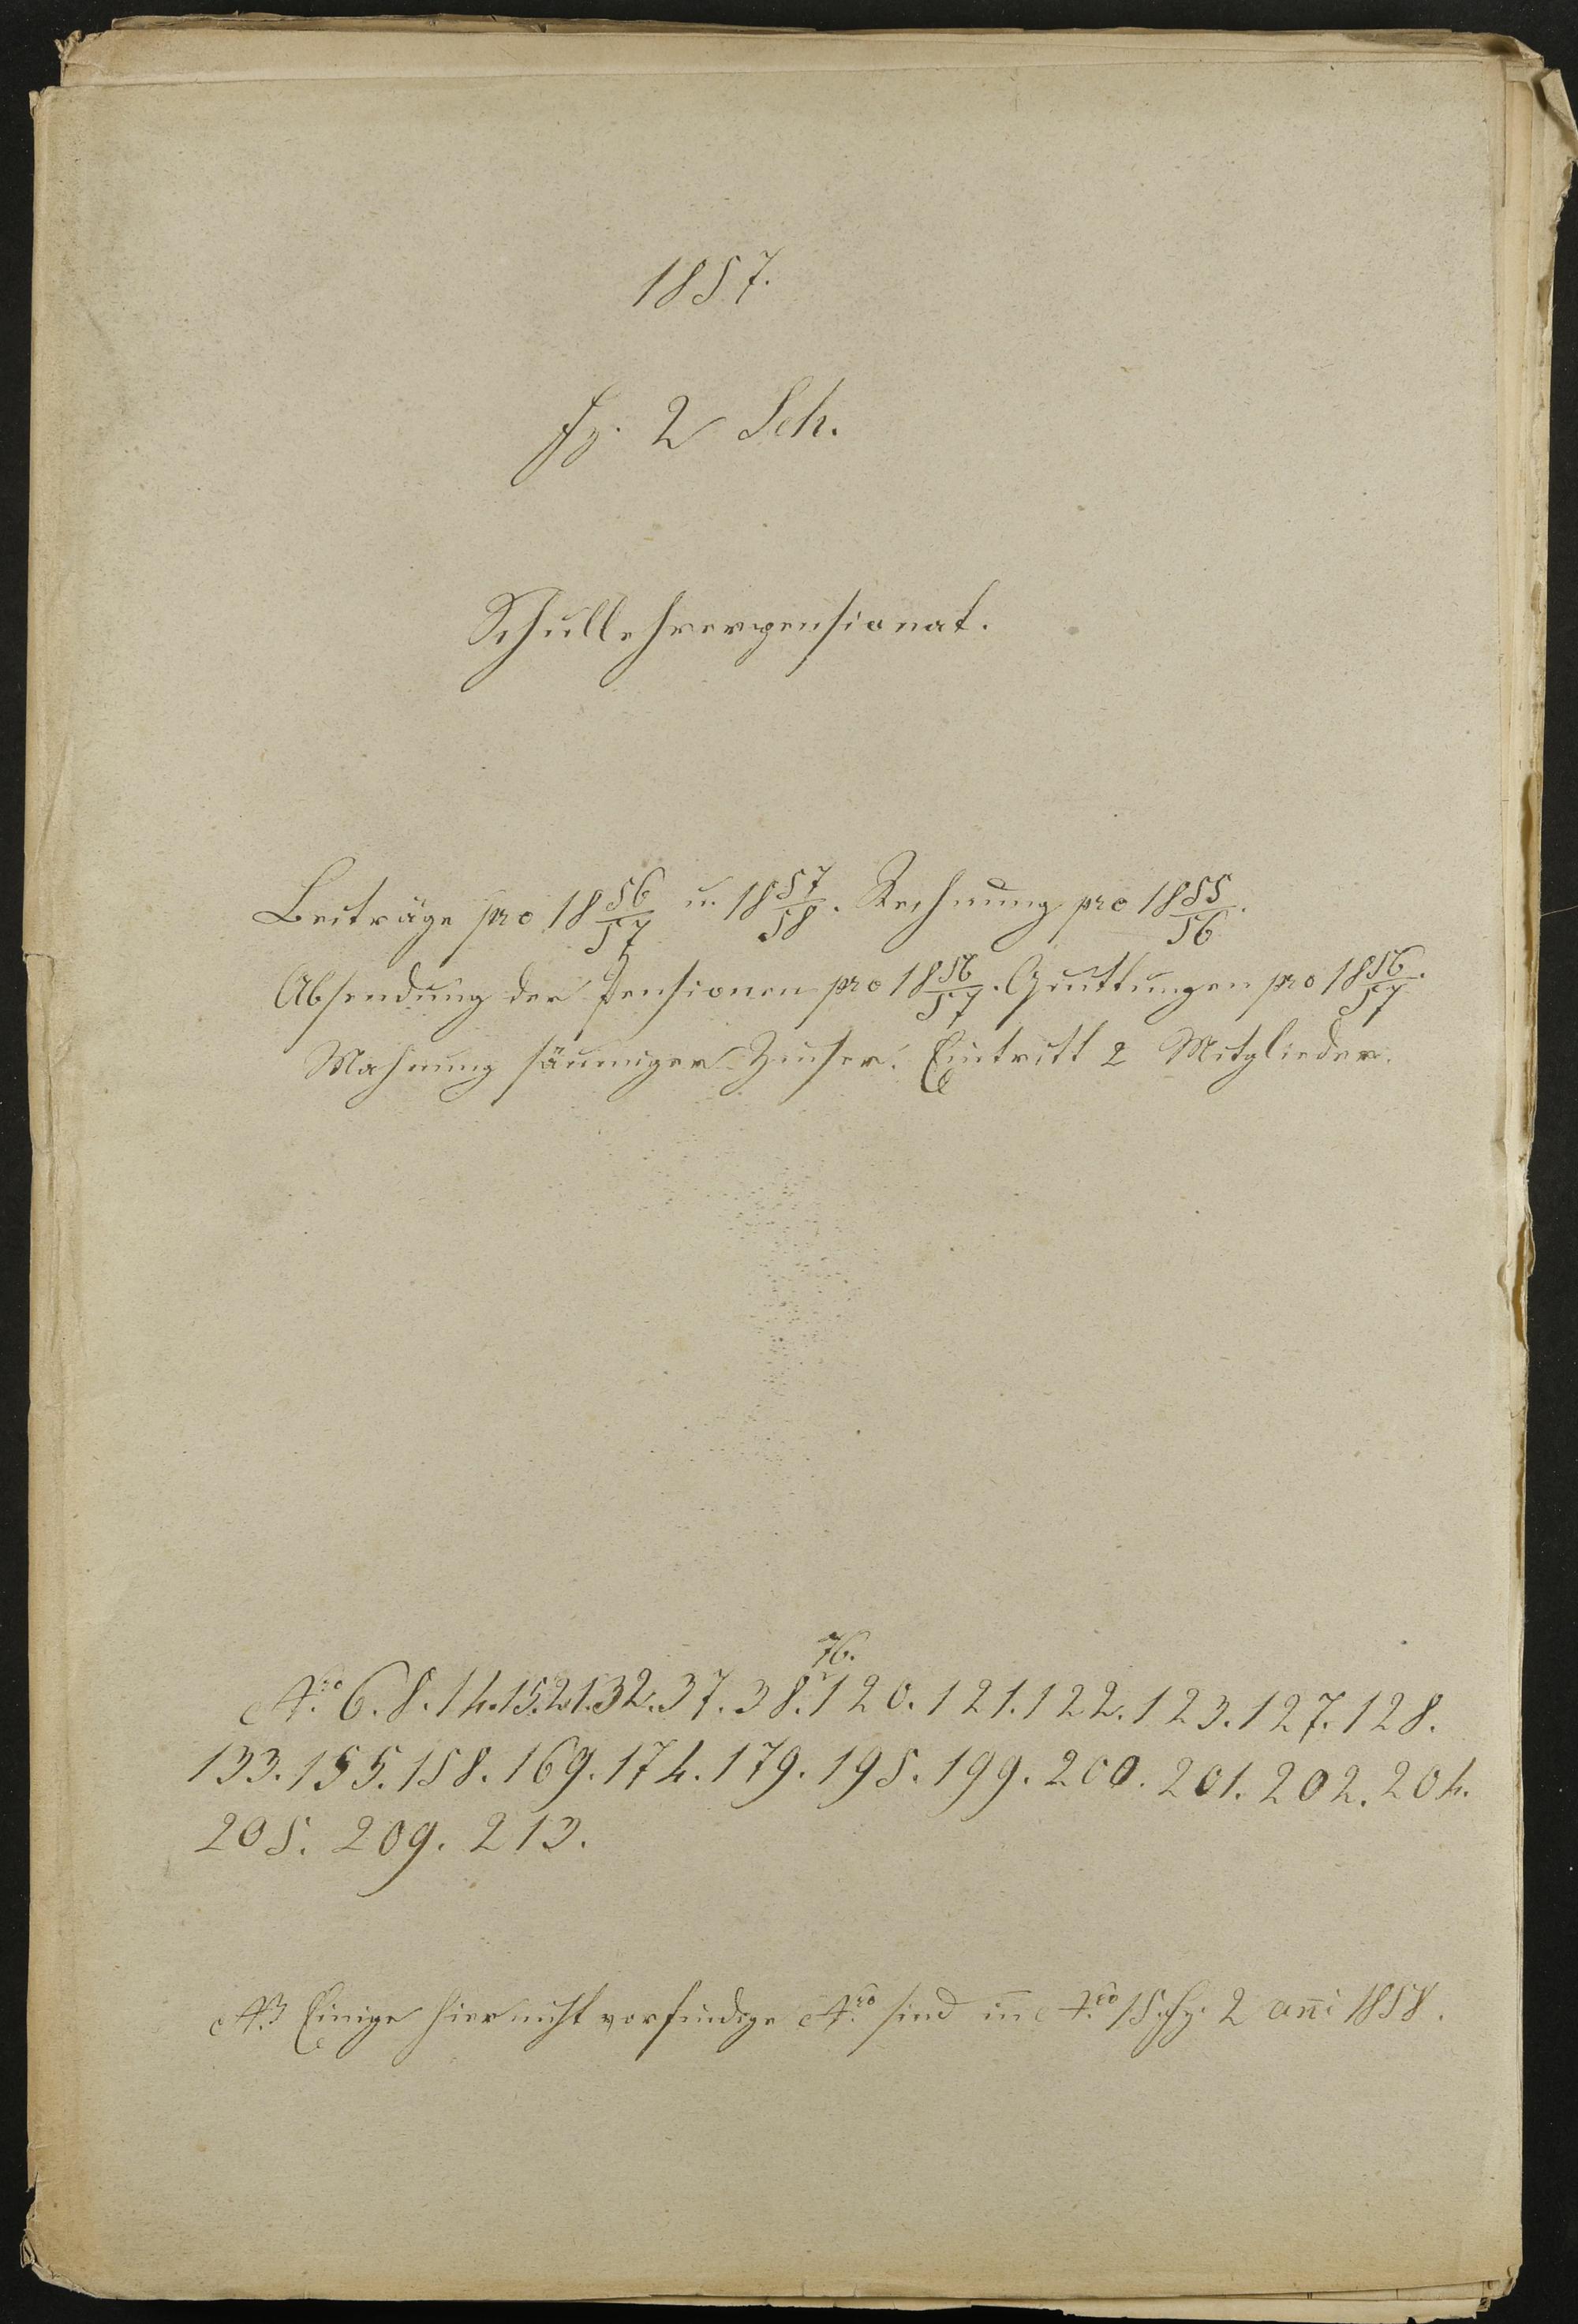 1857.
fz. 2 Sch.
Schullehrerpensionat.
Beiträge pro 18 56/57 u. 18 57/58. Rechnung pro 18 55/56.
Absendung der Pensionen pro 18 56/57. Quittungen pro 18 56/57.
Mahnung säumiger Zinser. Eintritt 2 Mitglieder.
76.
Nro 6. 8. 14. 15. 21. 32. 37. 38. 120. 121. 122. 123. 127. 128.
133. 155. 158. 169. 174. 179. 195. 199. 200. 201. 202. 204.
205. 209. 213.
NB Einige hier nicht vorfindige Nro sind in Nro 15. fz. 2 ani 1858.